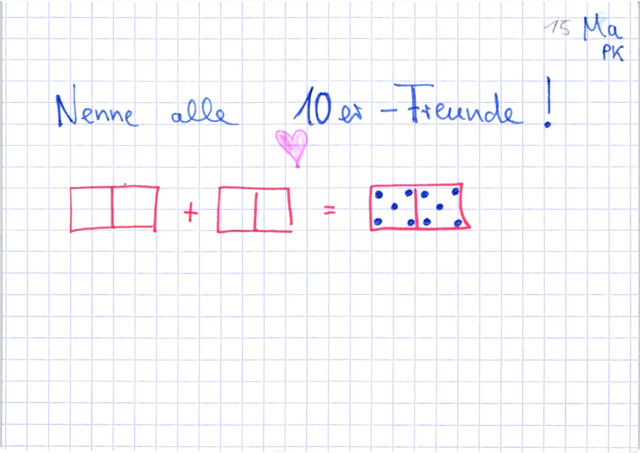 15 Ma
PK
Nenne alle 10er-Freunde!
+ =